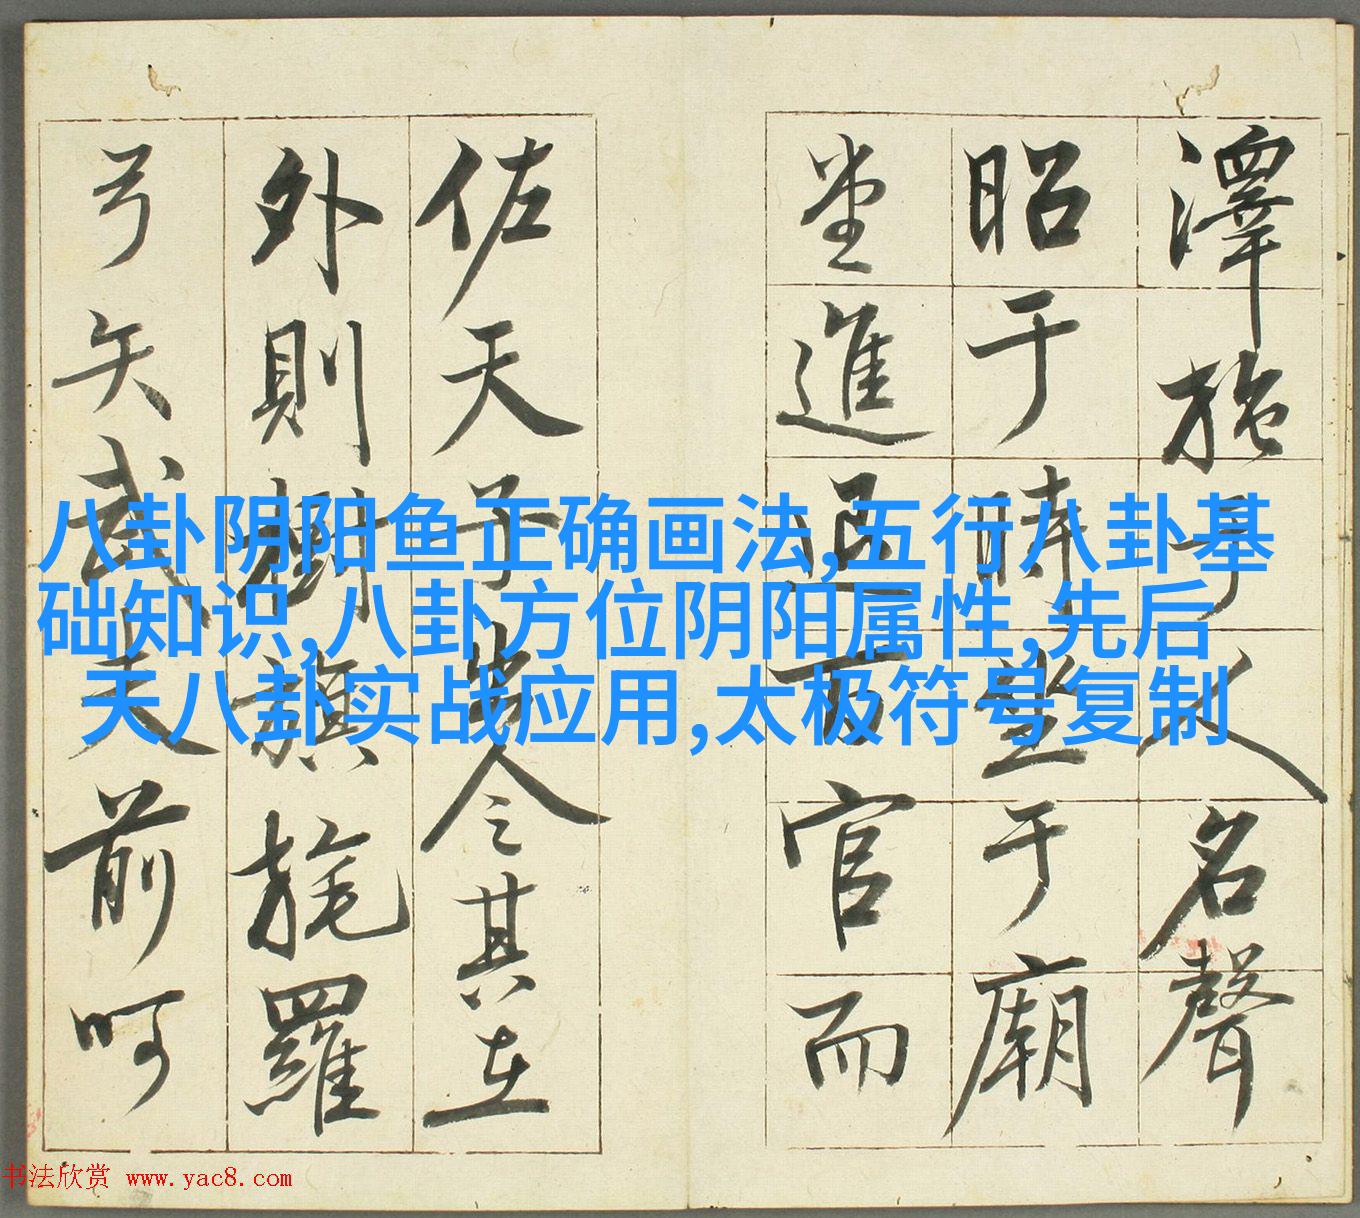 澤施于人名聲
昭于時坐于廟
堂進退百官而
佐天子出令其在
外則樹旗旄羅
弓矢武夫前呵
八卦阴阳鱼正确画法,五行八卦基
础知识,八卦方位阴阳属性,先后
天八卦实战应用,太极符号复制
书法欣赏 www.yac8.com